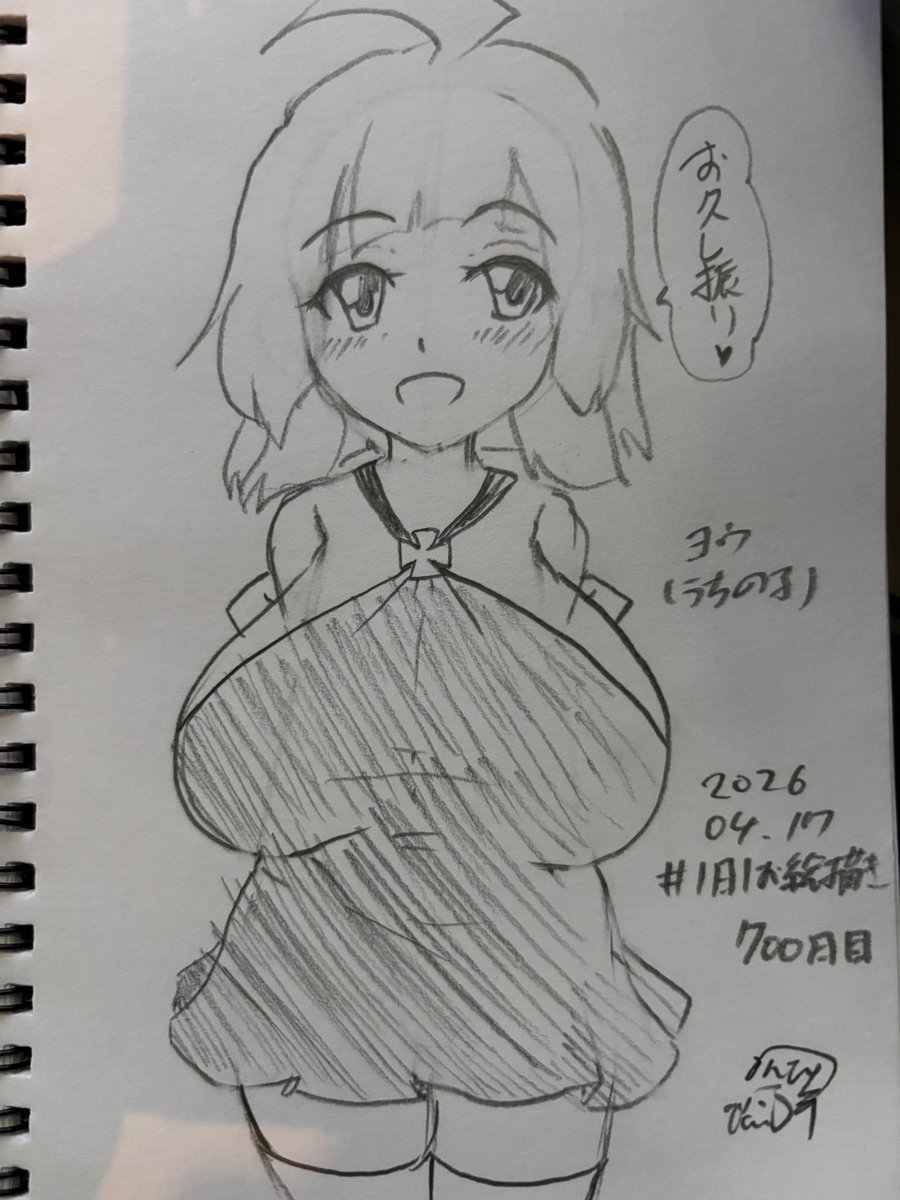 お久し振り♥
ヨウ
(うちの子)
2026
04.17
#1月1お絵描き
700月目